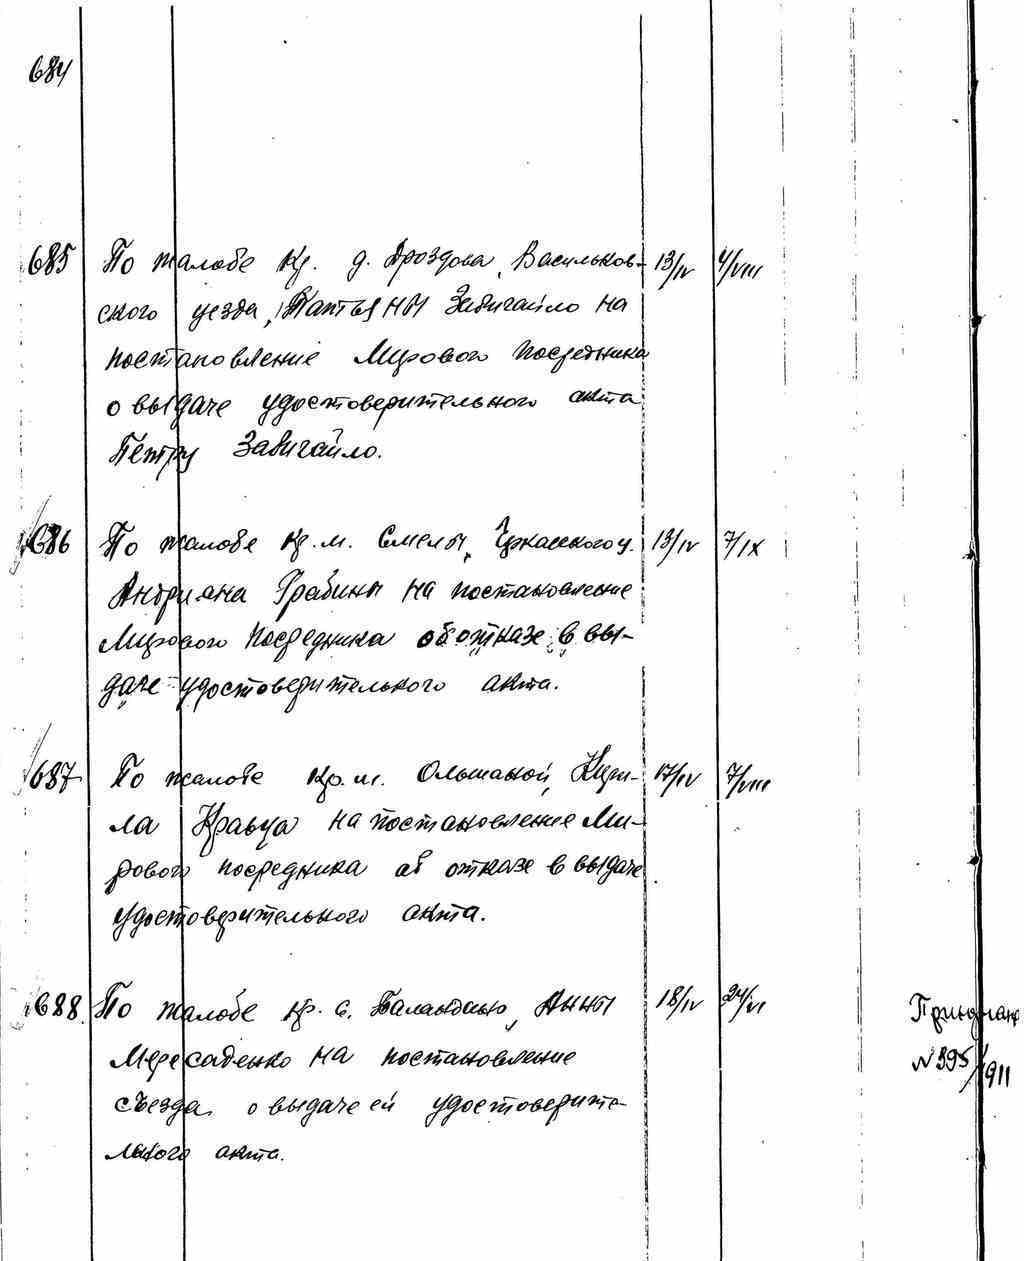 684
685 По жалобе Кр. д. Дроздова, Васильков- 13/IV 4/VIII
ского уезда, Татьяны Завигайло на
постановление Мирового Посредника
о выдаче удостоверительного акта
Петру Завигайло.
686 По жалобе кр. м. Смелы, Черкасского у. 13/IV 7/IX
Андриана Грабины на постановление
Мирового Посредника об отказе в вы-
даче удостоверительного акта.
687 По жалобе кр. м. Ольшаной, Кири- 17/IV 7/VIII
ла Кравца на постановление Ми-
рового посредника об отказе в выдаче
удостоверительного акта.
688. По жалобе кр. с. Баландино, Анны 18/IV 24/VI
на постановление
съезда о выдаче ей удостоверите-
льного акта.
N 395/911